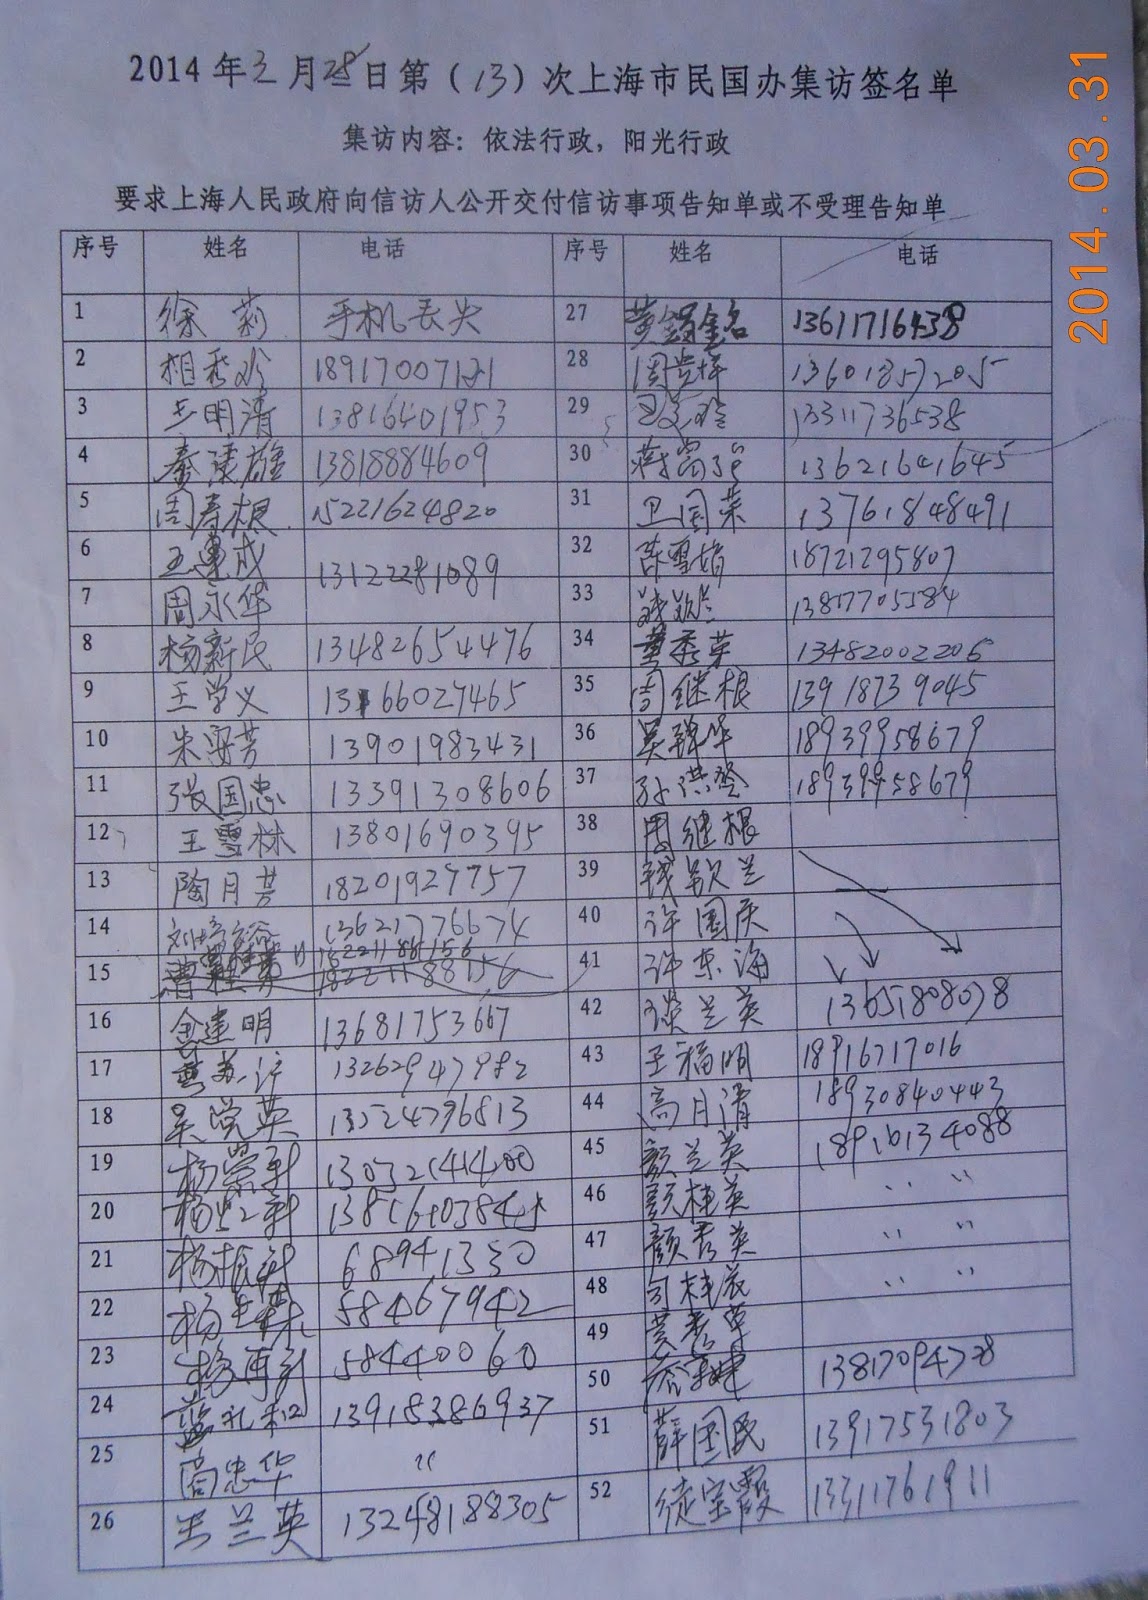 2014年3月28日第（13）次上海市民国办集访签名单
集访内容：依法行政，阳光行政
要求上海人民政府向信访人公开交付信访事项告知单或不受理告知单
2014.03.31
序号 姓名 电话 序号 姓名 电话
1 徐莉 手机丢失 27 13611716438
2 相秀 18917007121 28 周 13601857205
3 王明清 13816401953 29 13311736538
4 秦 雄 13818884609 30 蒋 13621641645
5 周寿根 15221624820 31 卫国荣 13761848491
6 王 成 13122281089 32 陈雪娟 18721295807
7 周永华 33 钱 兰 13817705584
8 杨新民 13482654476 34 黄秀英 13482002206
9 王学义 13166027465 35 周继根 13918739045
10 朱 芳 13901983431 36 吴 华 18939958679
11 张国忠 13391308606 37 孙洪 18939958679
12 王雪林 13801690395 38 周继根
13 陶月芳 18201927757 39 钱 兰
14 刘 13621776674 40 许国庆
15 18221188156 41 许东海
16 金建明 13681753667 42 谈兰英 13651808078
17 黄 13262947982 43 王福明 18916717016
18 吴党英 13524796813 44 高月清 18930840443
19 杨荣新 13032141400 45 颜兰英 18916134088
20 杨 新 46 颜桂英 〃 〃
21 杨根 68941330 47 颜秀英 〃 〃
22 杨 58467942 48 〃 〃
23 杨再 58440060 49 黄秀
24 蓝礼和 13918386937 50 13817094728
25 高忠华 〃 51 薛国民 13917531803
26 王兰英 13248188305 52 徒宝霞 13311761911